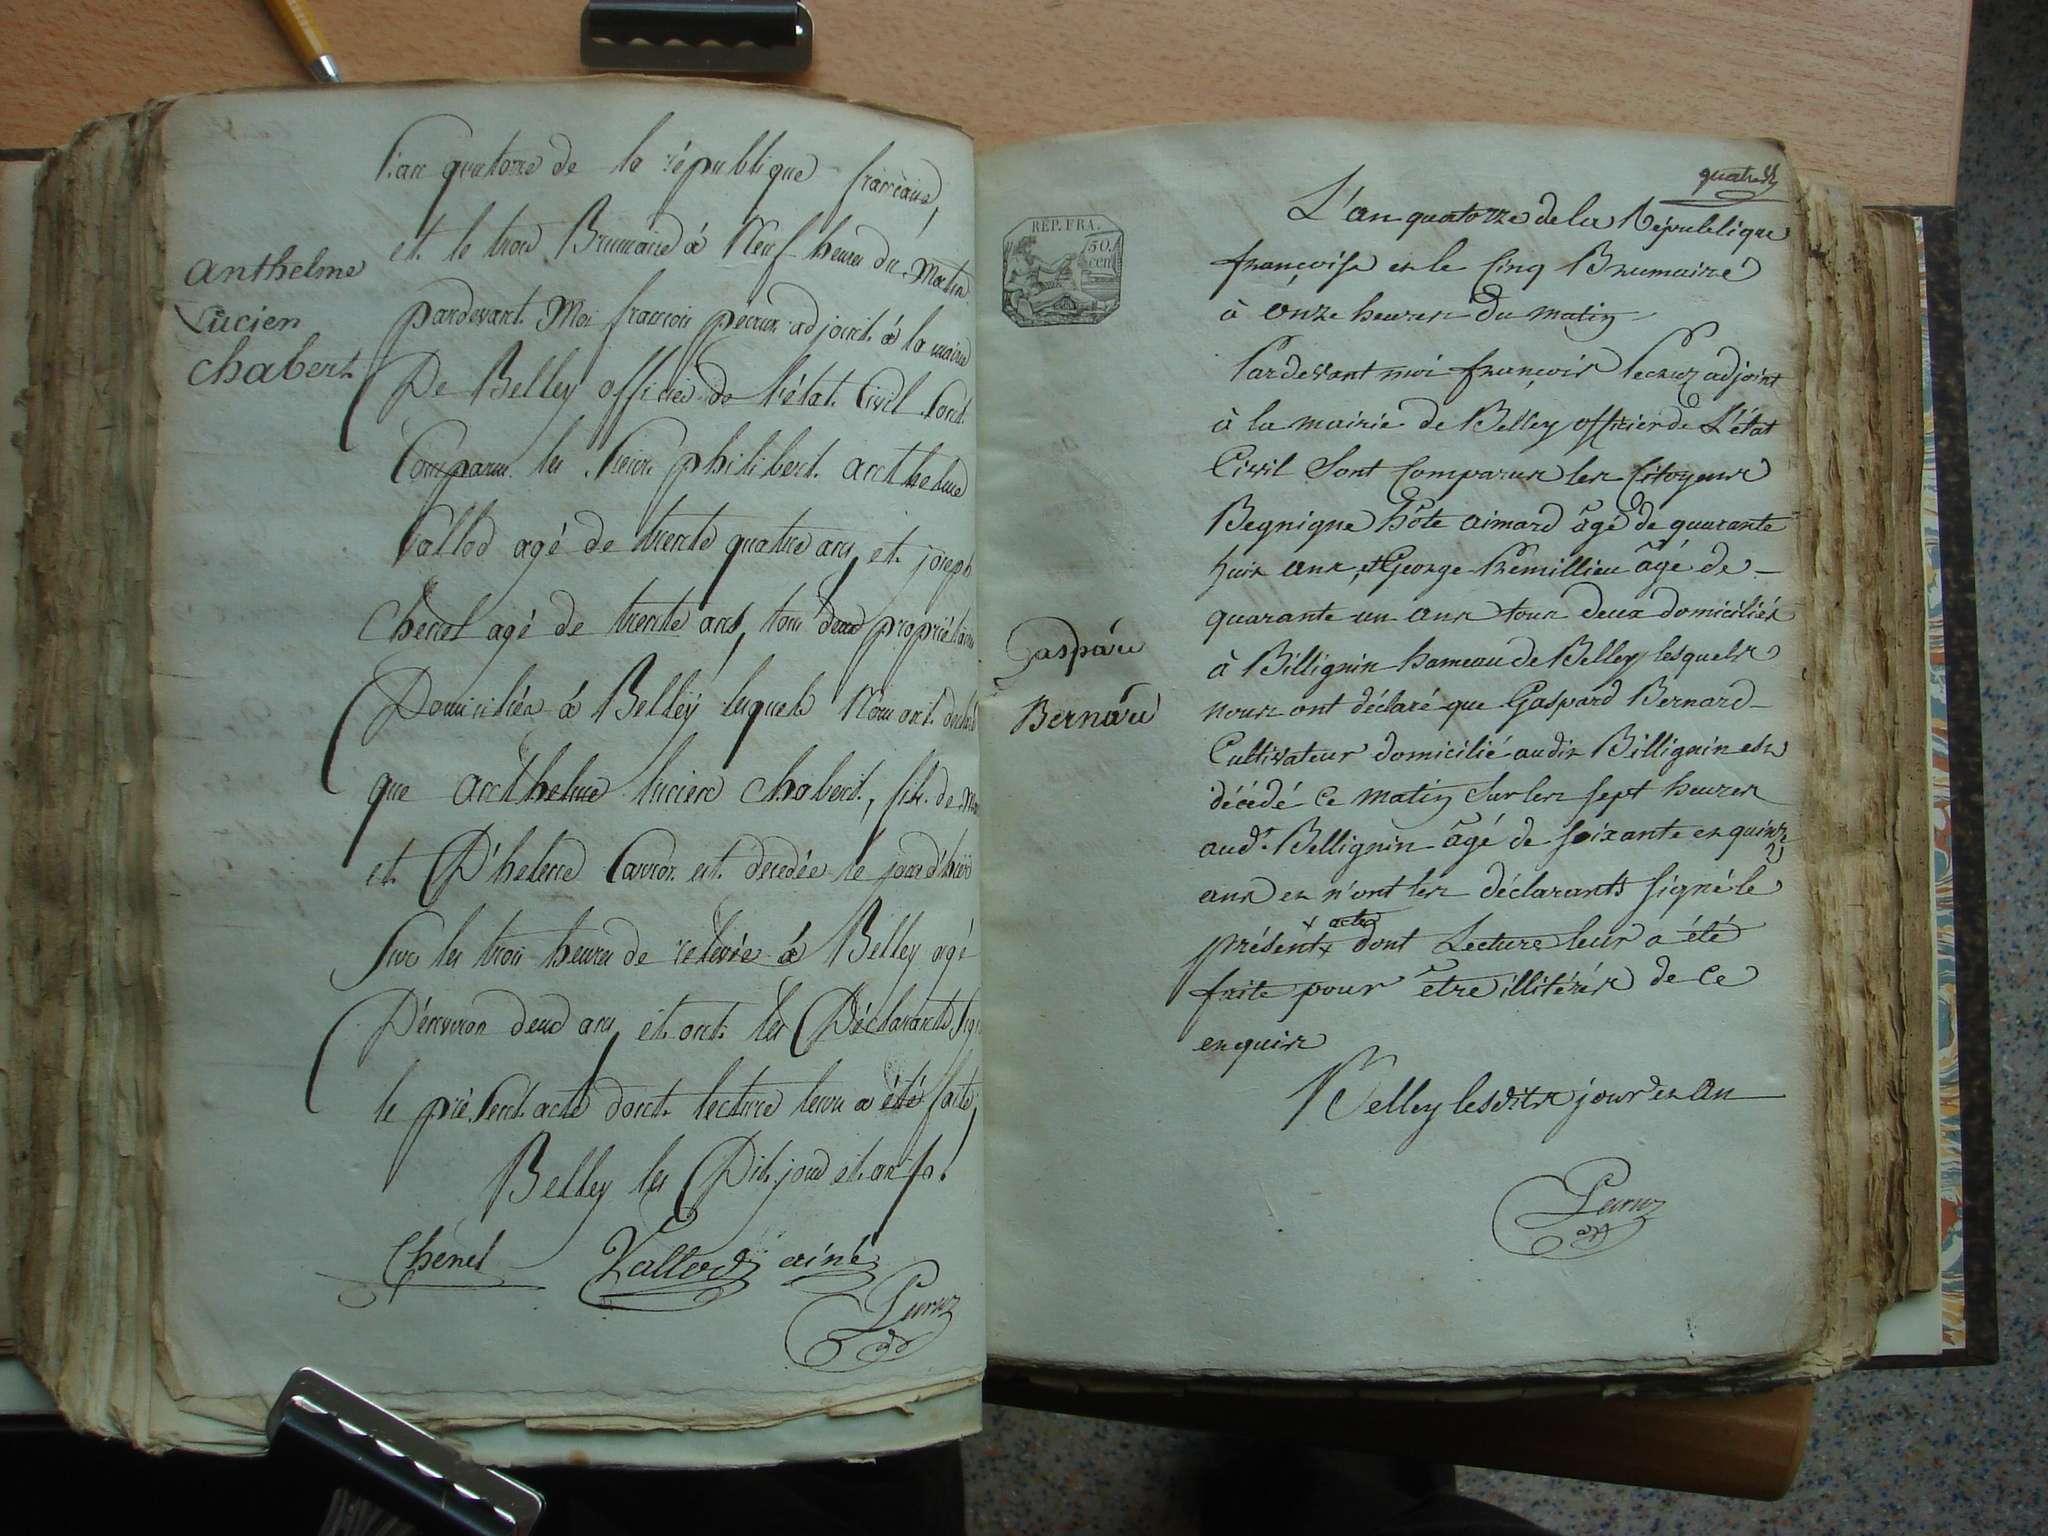 L'an quatorze de la république francaise,
et le trois Brumaire à Neuf heures du Matin
pardevant Moi francois pecruz adjoint à la mairie
De Belley officier de l'état Civil Sont
Comparus les Sieurs philibert anthelme
Vallod agé de trente quatre ans, et joseph
Chenel agé de trente ans, tous deux propriétaires
Domiciliés à Belley lesquels Nous ont déclaré
que anthelme lucien Chabert, fils de
et D'helene Carron est decedée le jour d'hier
Sur les trois heures de relevée à Belley agé
D'environ deux ans, et ont les Déclarants
le présent acte dont lecture leur a été faite,
Belley les Dit jour et an
Chénel Vallod ainé
Pecruz
anthelme
Lucien
Chabert
quatre
REP. FRA.
50.
cen
L'an quatorze de la République
françoise et le Cinq Brumaire
à Onze heures Du matin
Pardevant moi françois Pecruz adjoint
à la mairie de Belley officier de L'état
Civil Sont Comparus les Citoyens
Begnigne hôte aimard âgé de quarante
huit ans, et George Premillieu âgé de
quarante un ans tous deux domiciliés
à Billignin hameau de Belley lesquels
nous ont déclaré que Gaspard Bernard
Cultivateur domicilié audit Billignin est
décédé Ce matin Sur les sept heures
aud.t Bellignin âgé de soixante et quinze
ans et n'ont les déclarants signé le
présent x acte dont Lecture leur a été
faite pour être illitérés de Ce
enquis
Belley lesdits jour et an
Pecruz
Gaspard
Bernard